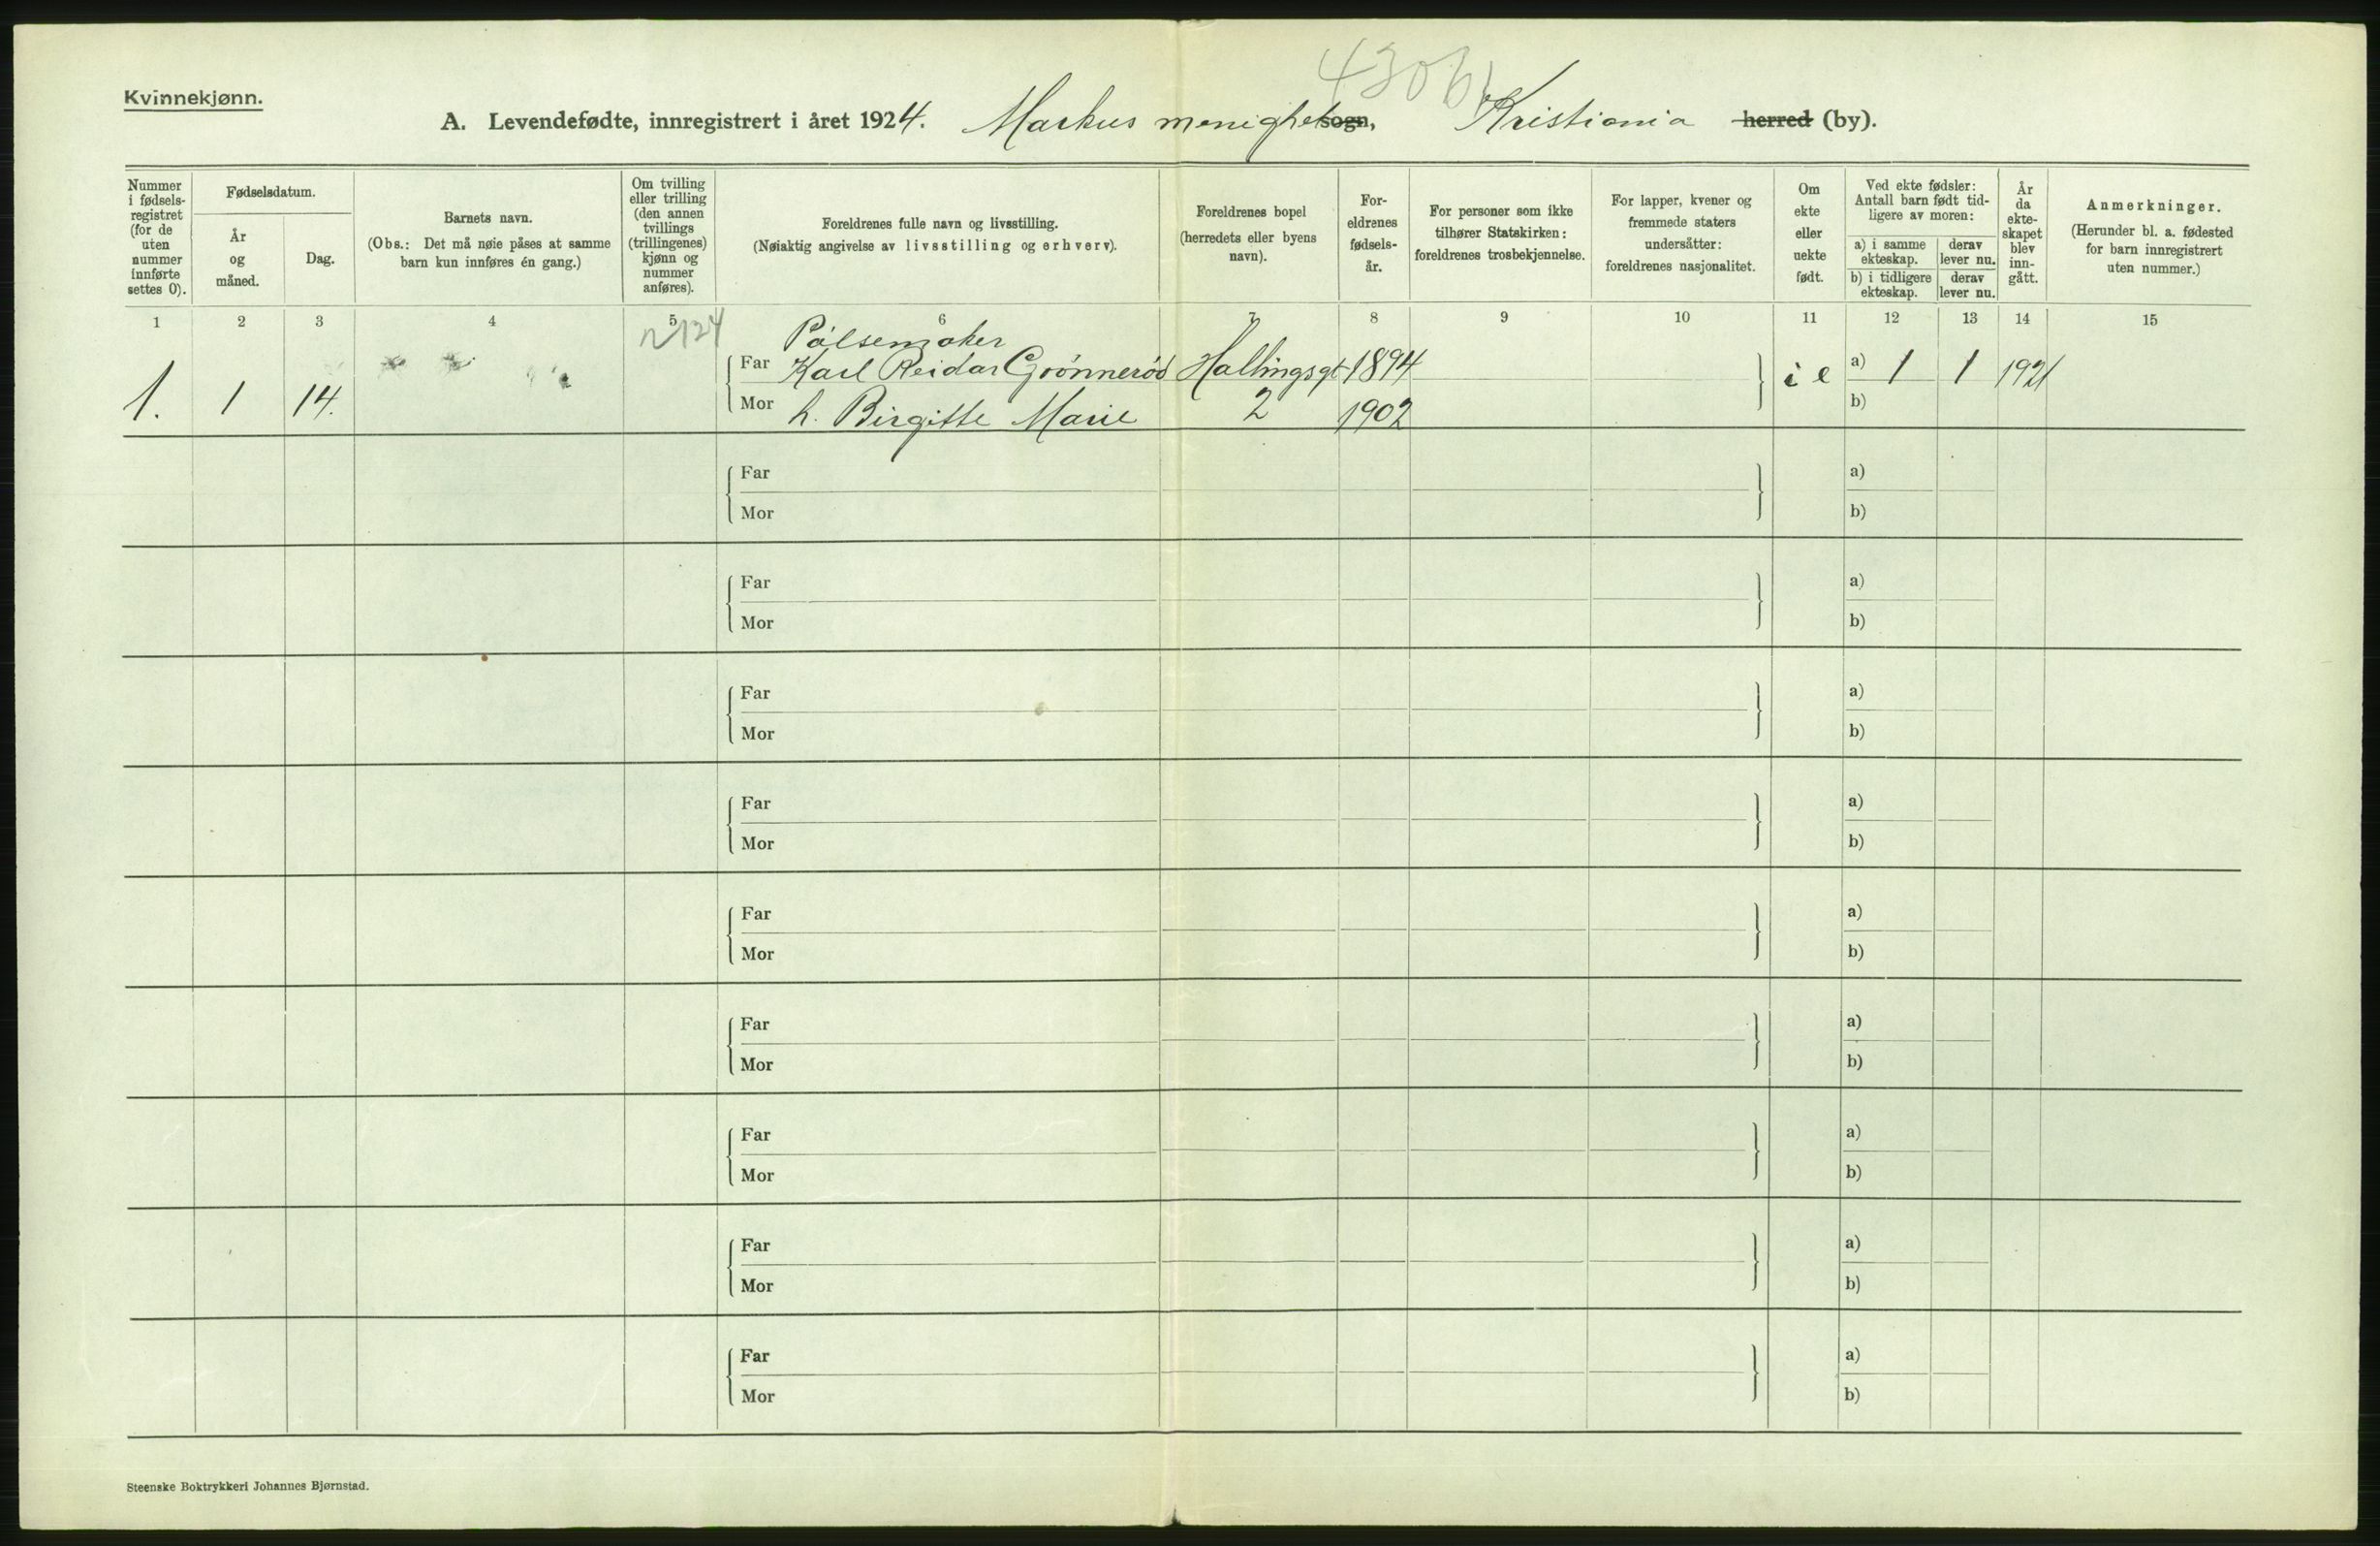 4306
Kvinnekjønn.
A. Levendefødte, innregistrert i året 1924. Markus menighet sogn, Kristiania herred (by).
Nummer
i fødsels-
registret
(for de
uten
nummer
innførte
settes 0).
Fødselsdatum.
År
og
måned.
Dag.
Barnets navn.
(Obs.: Det må nøie påses at samme
barn kun innføres én gang.)
Om tvilling
eller trilling
(den annen
tvillings
(trillingenes)
kjønn og
nummer
anføres).
Foreldrenes fulle navn og livsstilling.
(Nøiaktig angivelse av livsstilling og erhverv).
Foreldrenes bopel
(herredets eller byens
navn).
For-
eldrenes
fødsels-
år.
For personer som ikke
tilhører Statskirken:
foreldrenes trosbekjennelse.
For lapper, kvener og
fremmede staters
undersåtter:
foreldrenes nasjonalitet.
Om
ekte
eller
uekte
født.
Ved ekte fødsler:
Antall barn født tid-
ligere av moren:
a) i samme
ekteskap.
derav
lever nu.
b) i tidligere
ekteskap.
derav
lever nu.
År
da
ekte-
skapet
blev
inn-
gått.
Anmerkninger.
(Herunder bl. a. fødested
for barn innregistrert
uten nummer.)
1 2 3 4 5 6 7 8 9 10 11 12 13 14 15
Pølsemaker
Far Karl Reidar Grønnerød Hallingsgt 1894 a) 1 1 1921
1. 1 14. i e
Mor h. Birgitte Marie 2 1902 b)
Far a)
Mor b)
Far a)
Mor b)
Far a)
Mor b)
Far a)
Mor b)
Far a)
Mor b)
Far a)
Mor b)
Far a)
Mor b)
Far a)
Mor b)
Far a)
Mor b)
Steenske Boktrykkeri Johannes Bjørnstad.